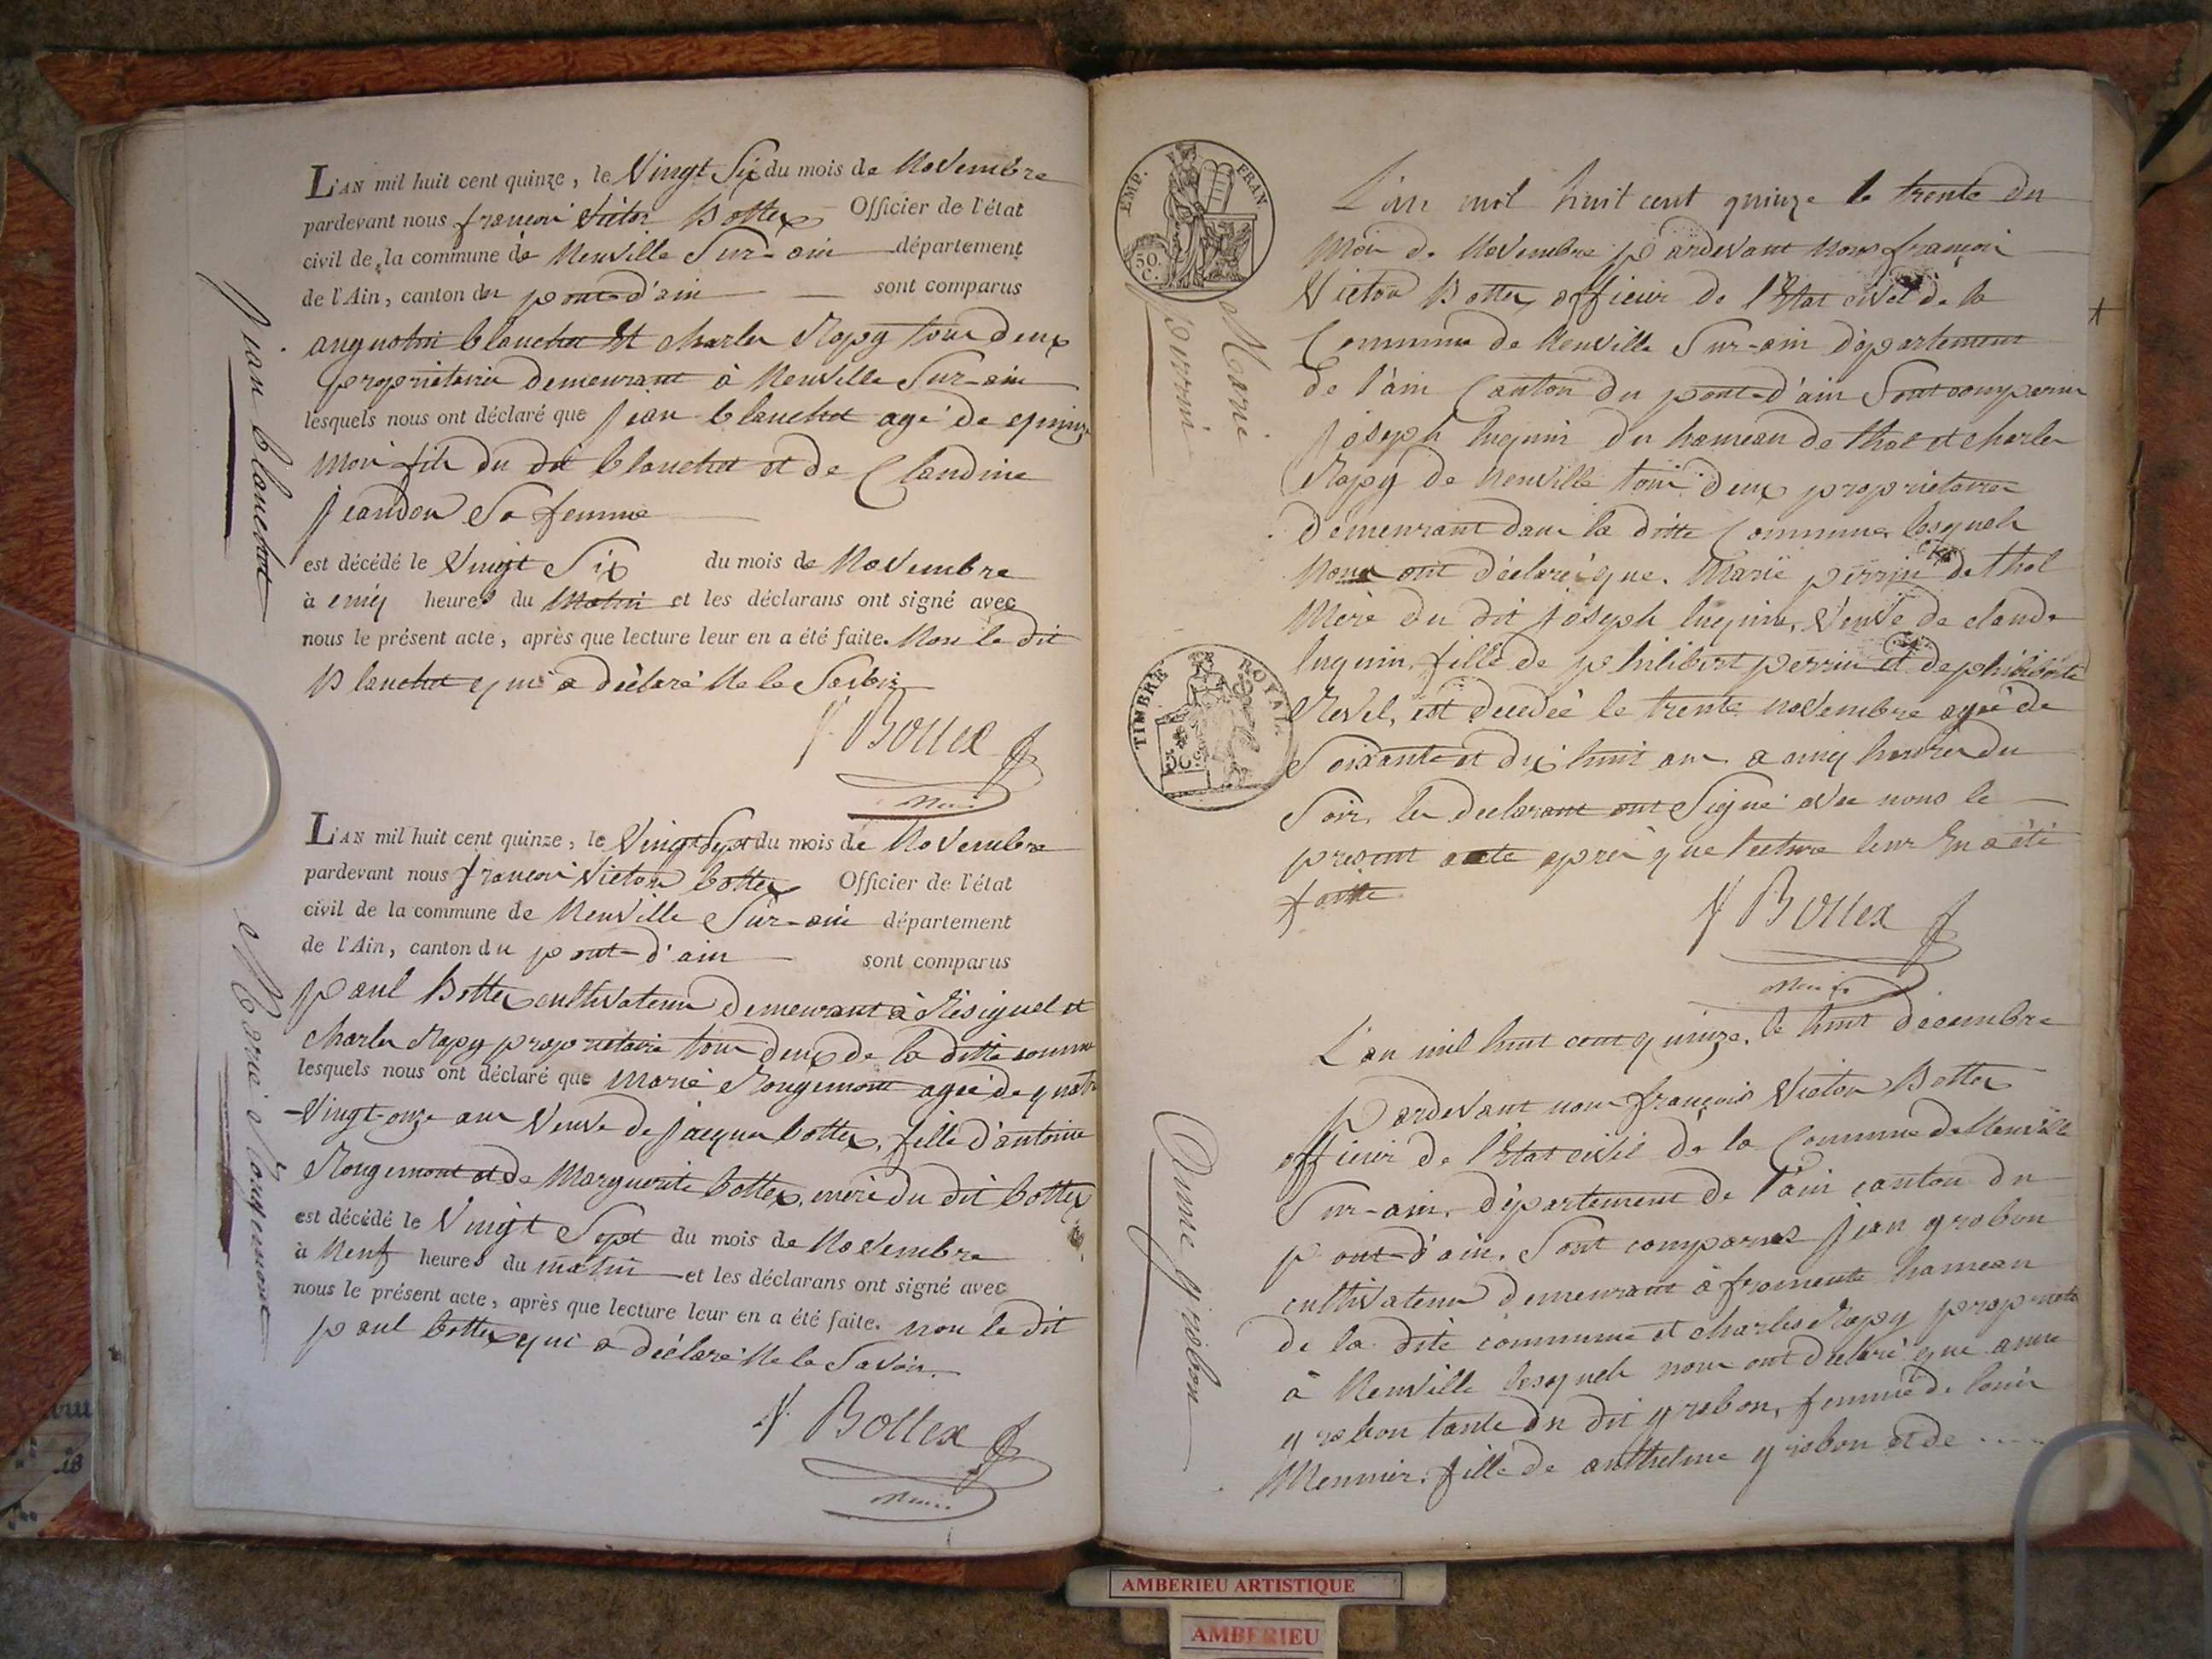 L'AN mil huit cent quinze, le Vingt Six du mois de Novembre
pardevant nous françois Victor Bottex Officier de l'état
civil de la commune de Neuville Sur-ain département
de l'Ain, canton du pont-d'ain sont comparus
augustin blanchet Et charles Rapy tous deux
propriétaires demeurant à Neuville Sur-ain
lesquels nous ont déclaré que jean blanchet agé de quinze
mois fils du dit blanchet et de Claudine
jeandon Sa femme
est décédé le Vingt Six du mois de Novembre
à cinq heures du Matin et les déclarans ont signé avec
nous le présent acte, après que lecture leur en a été faite. Non le dit
Blanchet qui a déclaré Ne le Savoir
f. Bottex
Maire
jean blanchet
L'AN mil huit cent quinze, le Vingt Sept du mois de Novembre
pardevant nous françois Victor bottex Officier de l'état
civil de la commune de Neuville Sur-ain département
de l'Ain, canton du pont-d'ain sont comparus
paul Bottex cultivateur demeurant à Résignel et
charles Rapy propriétaire tous deux de la ditte commune
lesquels nous ont déclaré que Marie Rougemont agée de quatre
-Vingt-onze ans Veuve de jacques bottex, fille d'antoine
Rougemont et de Marguerite bottex, mère du dit bottex
est décédé le Vingt Sept du mois de Novembre
à Neuf heures du matin et les déclarans ont signé avec
nous le présent acte, après que lecture leur en a été faite. non le dit
paul bottex qui a déclaré Ne le Savoir.
f. Bottex
Maire
Marie Rougemont
EMP. FRAN.
50. C.
TIMBRE ROYAL
50 c
Marie
perrin
L'an mil huit cent quinze le trente du
Mois de Novembre pardevant nous françois
Victor Bottex officier de l'Etat civil de la
Commune de Neuville Sur-ain département
de l'ain Canton du pont-d'ain Sont comparus
joseph luquin du hameau de thol et charles
Rapy de Neuville tous deux propriétaires
demeurant dans la ditte Commune, lesquels
Nous ont déclaré que. Marie perrin de thol
Mère du dit joseph luquin, Veuve de claude
luquin, fille de philibert perrin et de philiberte
Revel, est décedée le trente novembre agée de
Soixante et dix huit ans a cinq heures du
Soir, les declarant ont Signé avec nous le
present acte après que lecture leur En a été
faitte
f. Bottex
Maire
L'an mil huit cent quinze, le huit décembre
pardevant nous françois Victor Bottex
officier de l'Etat civil de la Commune de Neuville
Sur-ain, département de l'ain canton du
pont-d'ain. Sont comparus jean grobon
cultivateur demeurant à fromente hameau
de la dite commune et charles Rapy propriéta
à Neuville lesquels nous ont declaré que anne
grobon tante du dit grobon, femme de louis
Meunier. fille de anthelme grobon et de ....
Anne grobon
AMBERIEU ARTISTIQUE
AMBERIEU